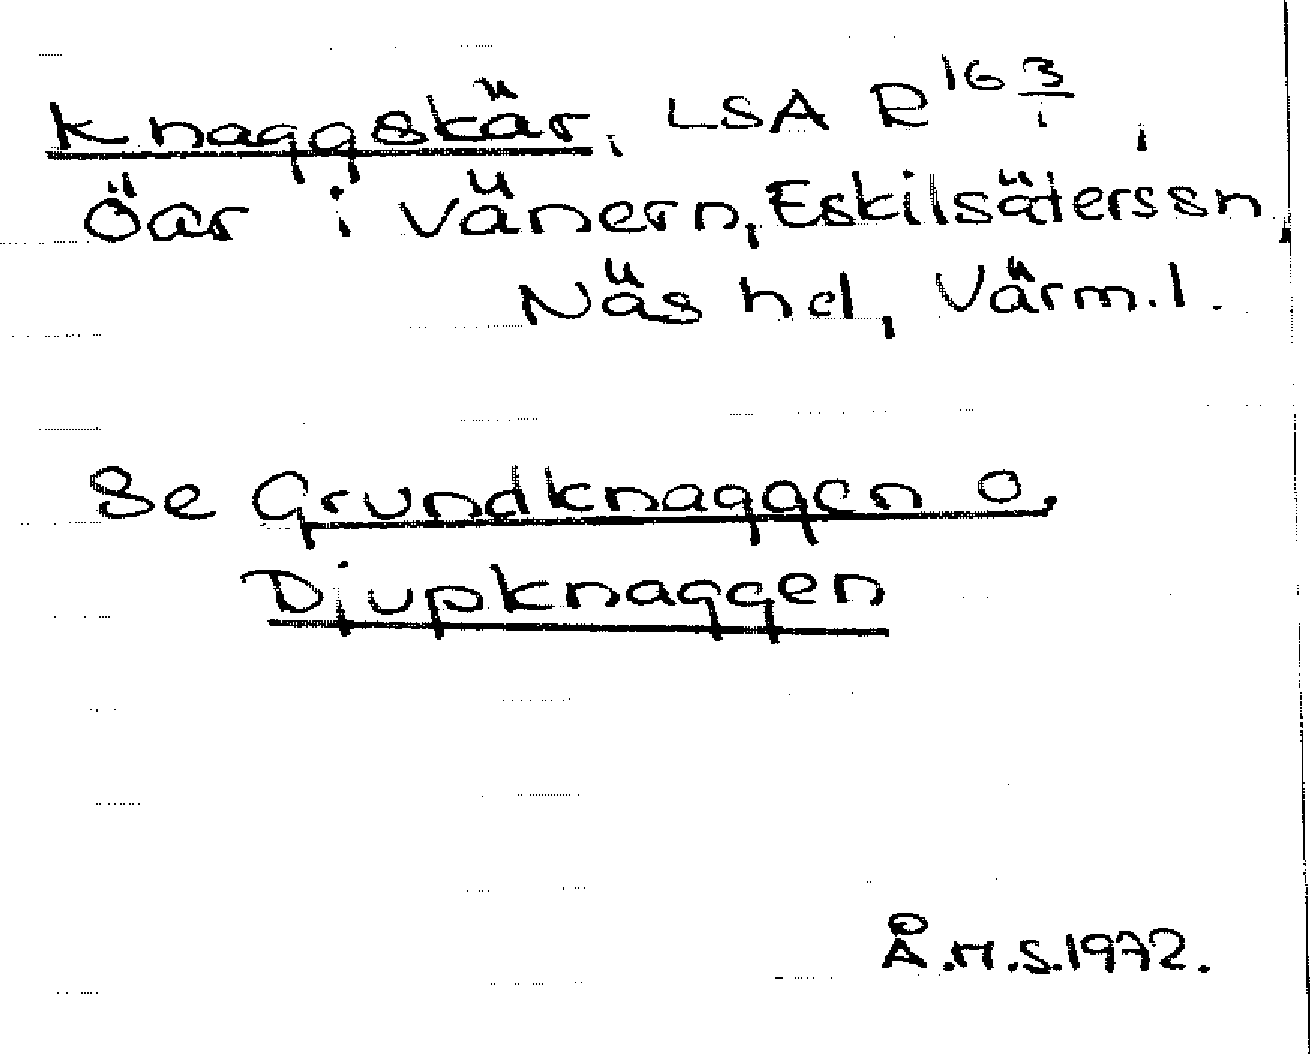 Knaggskär, LSA R 16 3/1,
öar i Vänern, Eskilsäterssn,
Näs hd, Värml.
Se Grundknaggen o.
Djupknaggen
Å.H.S.1972.